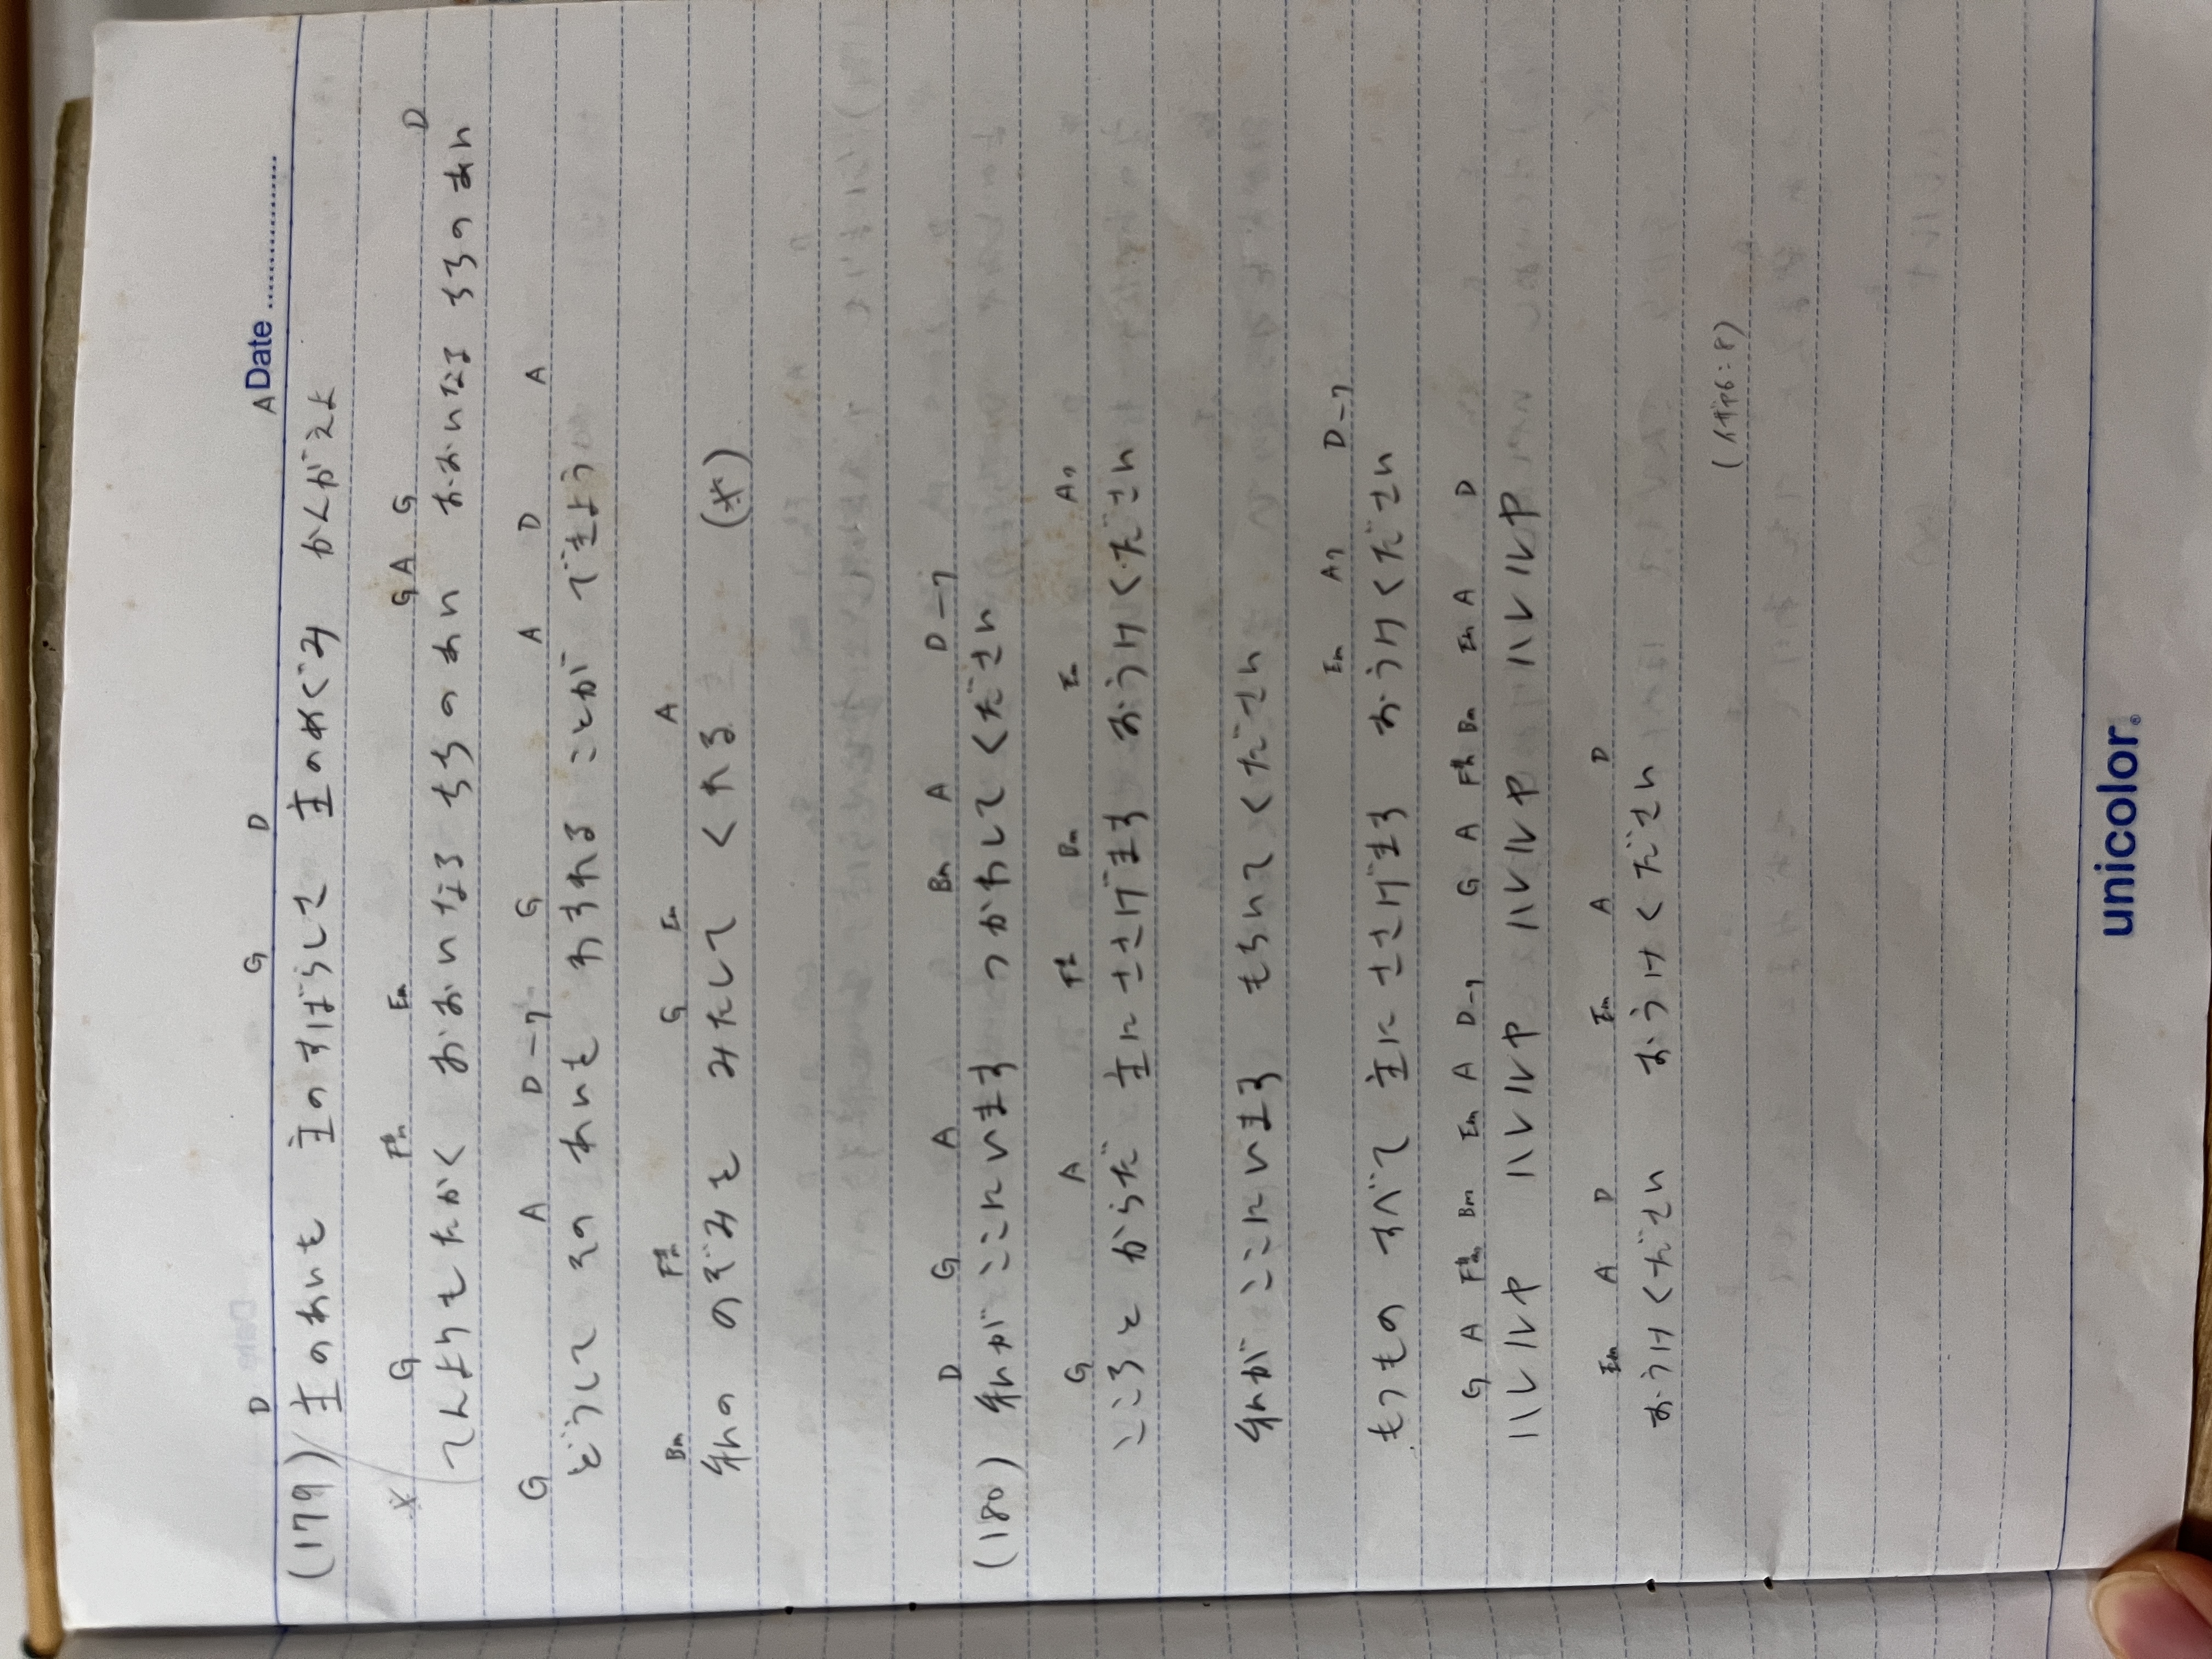 Date
D G D A
(179) 主のあいも 主のすばらしさ 主のめぐみ かんがえよ
※ G F#m Em G A G D
てんよりもたかく おおいなるちちのあい おおいなる ちちのあい
G A D-7 G A D A
どうして そのあいを わすれる ことが できよう
Bm F#m G Em A
私の のぞみを みたして くれる (※)
D G A Bm A D-7
(180) 私が ここにいます つかわしてください
G A F#m Bm Em A7
こころと からだ 主にささげます おうけください
私が ここにいます もちいてください
Em A7 D-7
もつもの すべて 主にささげます おうけください
G A F#m Bm Em A D-7 G A F#m Bm Em A D
ハレルヤ ハレルヤ ハレルヤ ハレルヤ
Em A D Em A D
おうけください おうけください
(イザヤ6:8)
unicolor